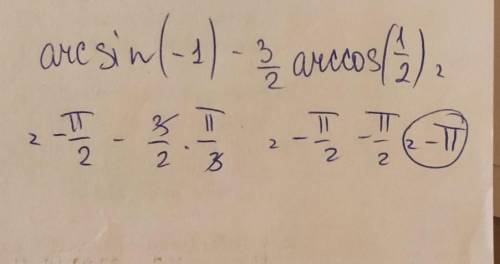 arcsin(-1) - 3/2 arccos(1/2) =
= -π/2 - 3/2 · π/3 = -π/2 - π/2 = -π